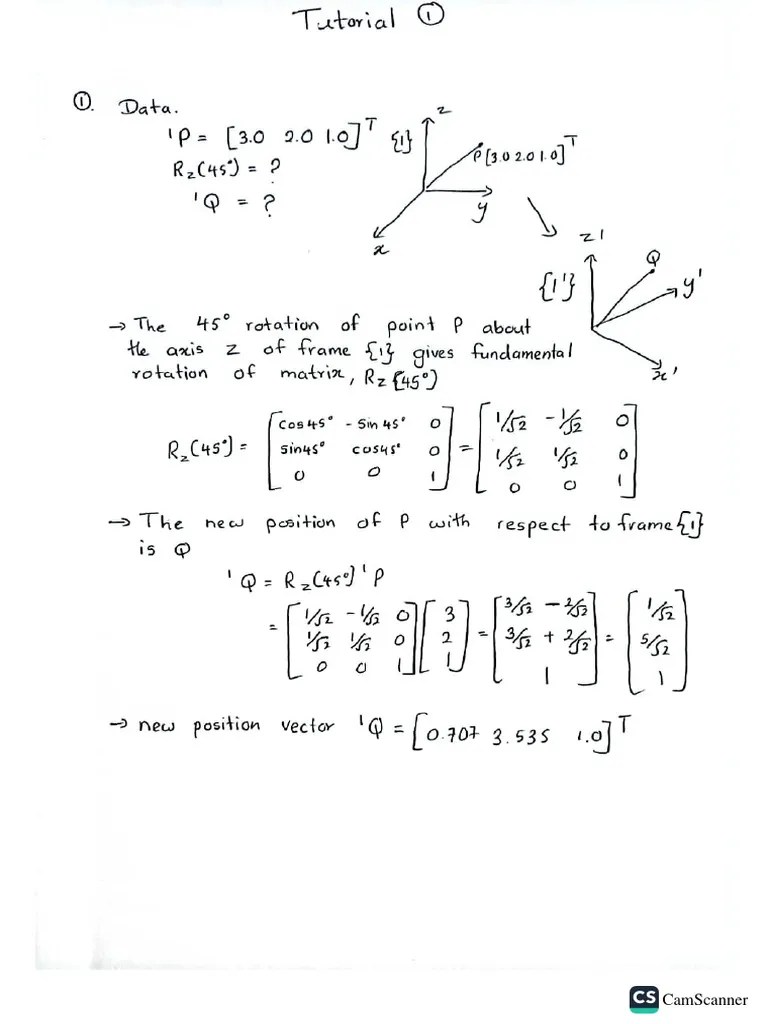 Tutorial ①
①. Data.
¹P = [3.0 2.0 1.0]ᵀ
R_z(45°) = ?
¹Q = ?
{1}
z
P[3.0 2.0 1.0]ᵀ
y
x
{1'}
z'
Q
y'
x'
→ The 45° rotation of point P about
the axis z of frame {1} gives fundamental
rotation of matrix, R_z(45°)
R_z(45°) = [cos45° -sin45° 0; sin45° cos45° 0; 0 0 1] = [1/√2 -1/√2 0; 1/√2 1/√2 0; 0 0 1]
→ The new position of P with respect to frame {1}
is Q
¹Q = R_z(45°) ¹P
= [1/√2 -1/√2 0; 1/√2 1/√2 0; 0 0 1] [3; 2; 1] = [3/√2 - 2/√2; 3/√2 + 2/√2; 1] = [1/√2; 5/√2; 1]
→ new position vector ¹Q = [0.707 3.535 1.0]ᵀ
CS CamScanner